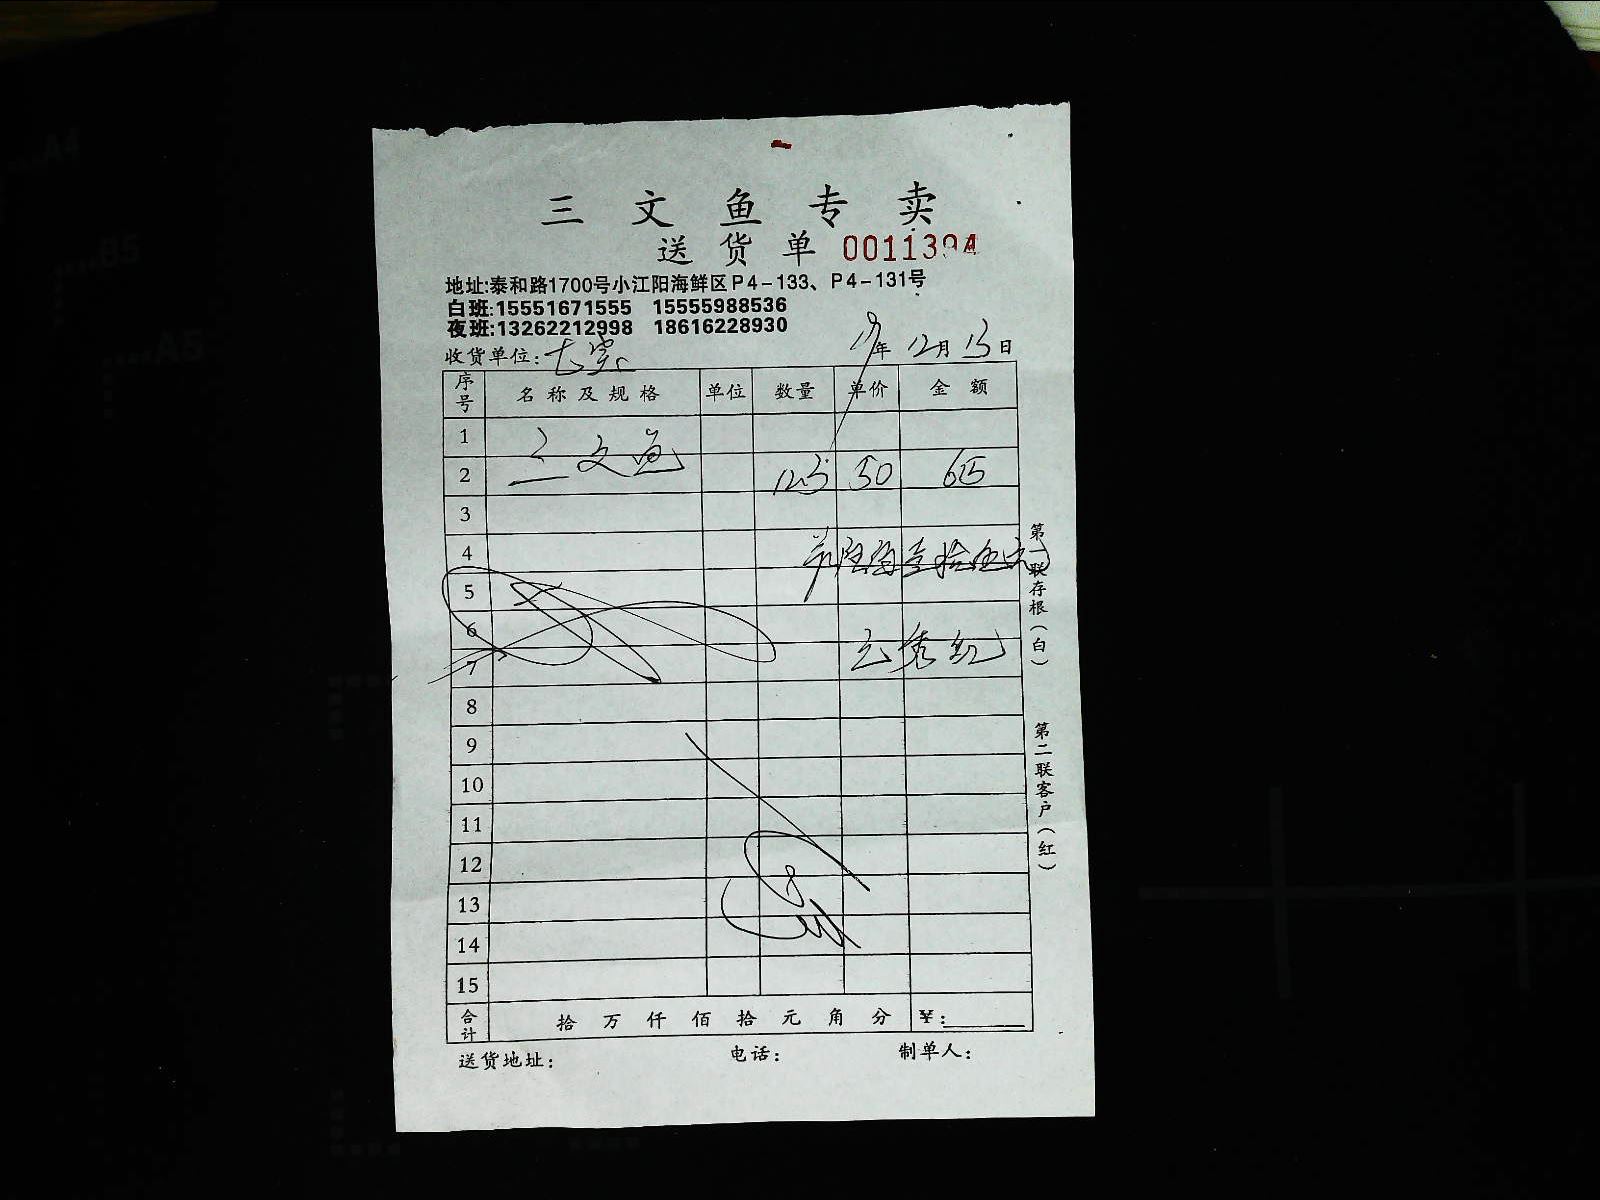 三文鱼专卖
送货单 0011394
地址:泰和路1700号小江阳海鲜区P4-133、P4-131号
白班:15551671555 15555988536
夜班:13262212998 18616228930
收货单位: 19年12月13日
序号 名称及规格 单位 数量 单价 金额
1
2 三文鱼 12.3 50 615
3
4 陆佰壹拾伍元
5
6
7 秀红
8
9
10
11
12
13
14
15
合计 拾万仟佰拾元角分 ¥:
送货地址: 电话: 制单人:
第一联存根(白)
第二联客户(红)